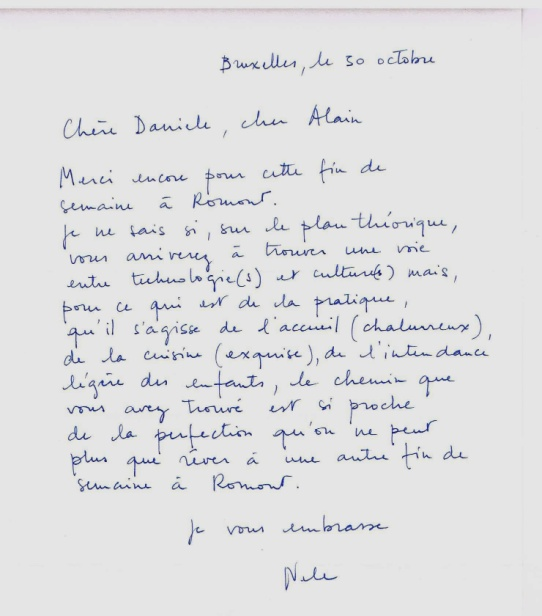 Bruxelles, le 30 octobre
Chère Daniele, cher Alain
Merci encore pour cette fin de
semaine à Romont.
Je ne sais si, sur le plan théorique,
vous arriverez à trouver une voie
entre technologie(s) et culture(s) mais,
pour ce qui est de la pratique,
qu'il s'agisse de l'accueil (chaleureux),
de la cuisine (exquise), de l'intendance
légère des enfants, le chemin que
vous avez trouvé est si proche
de la perfection qu'on ne peut
plus que rêver à une autre fin de
semaine à Romont.
Je vous embrasse
Nele